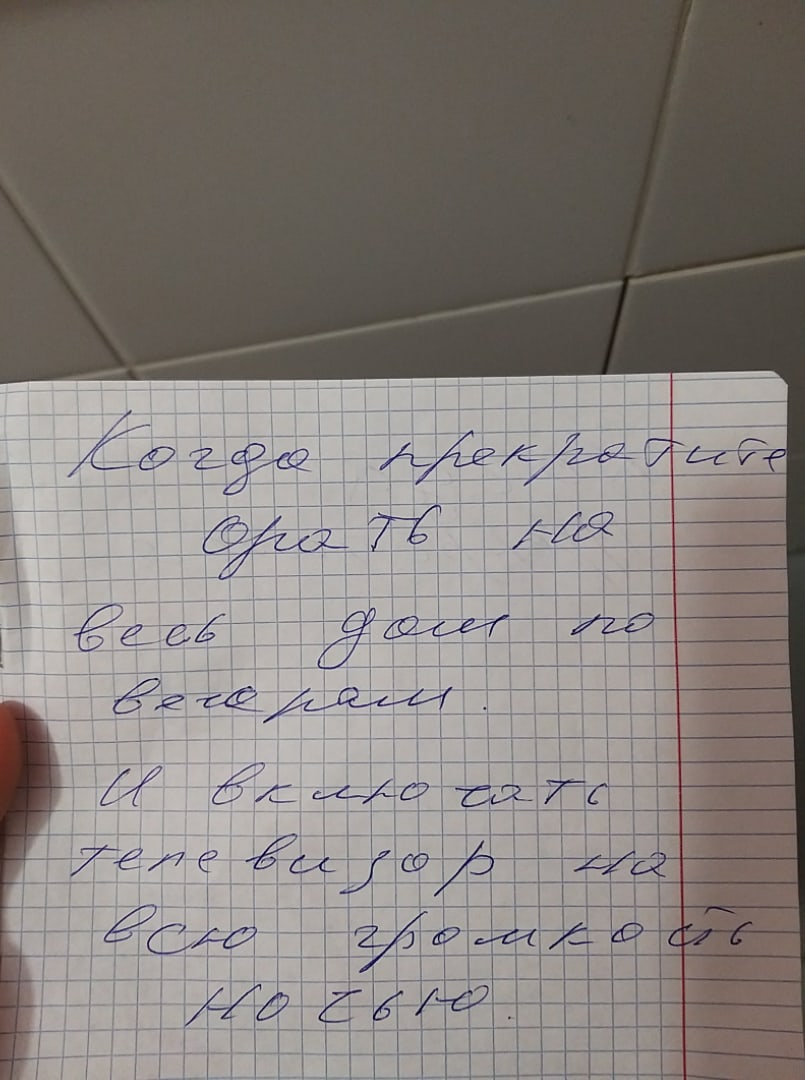 Когда прекратите
орать на
весь дом по
вечерам.
И включать
телевизор на
всю громкость
ночью.